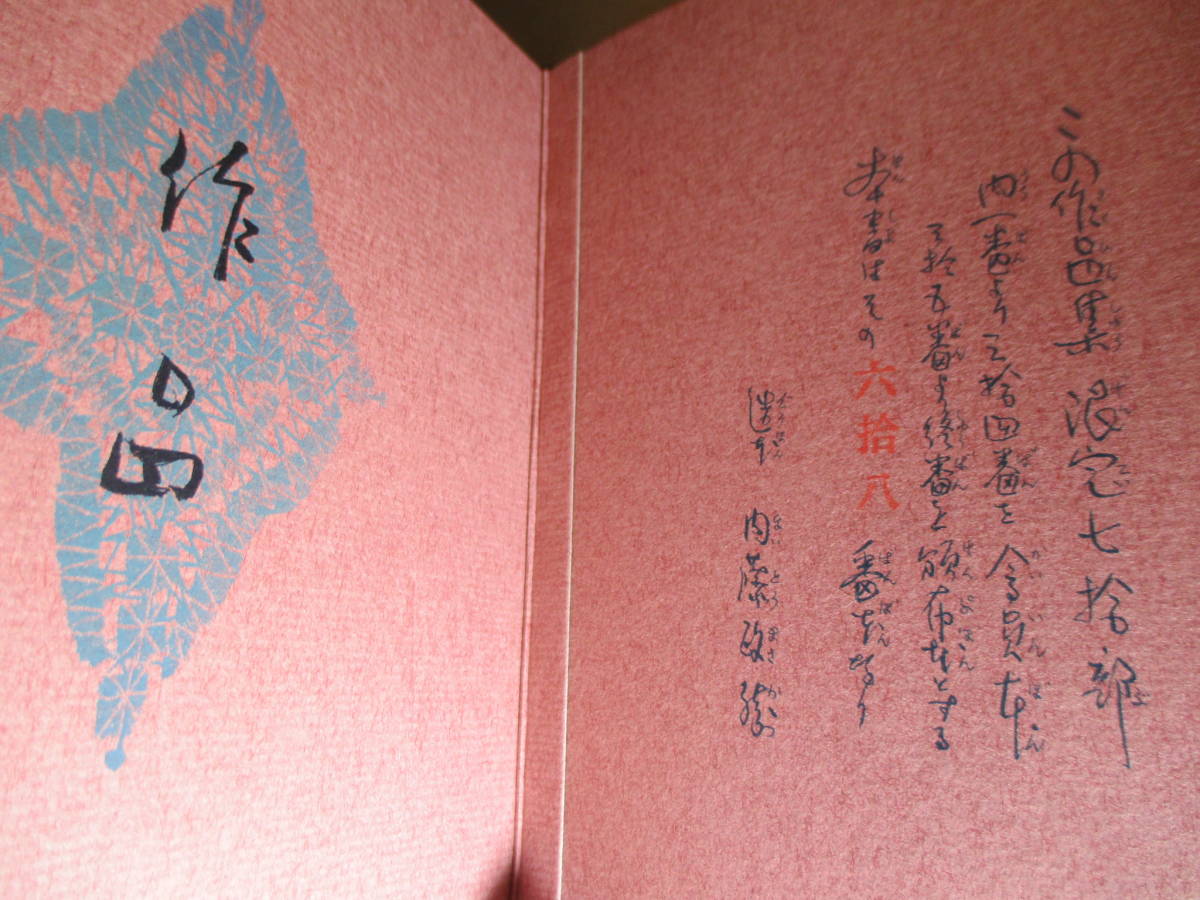 この作品集 限定七拾部
内一番より三拾四番を会員本
三拾五番より終番を頒布本とする
本書はその六拾八番本なり
造本 内藤政勝
作品